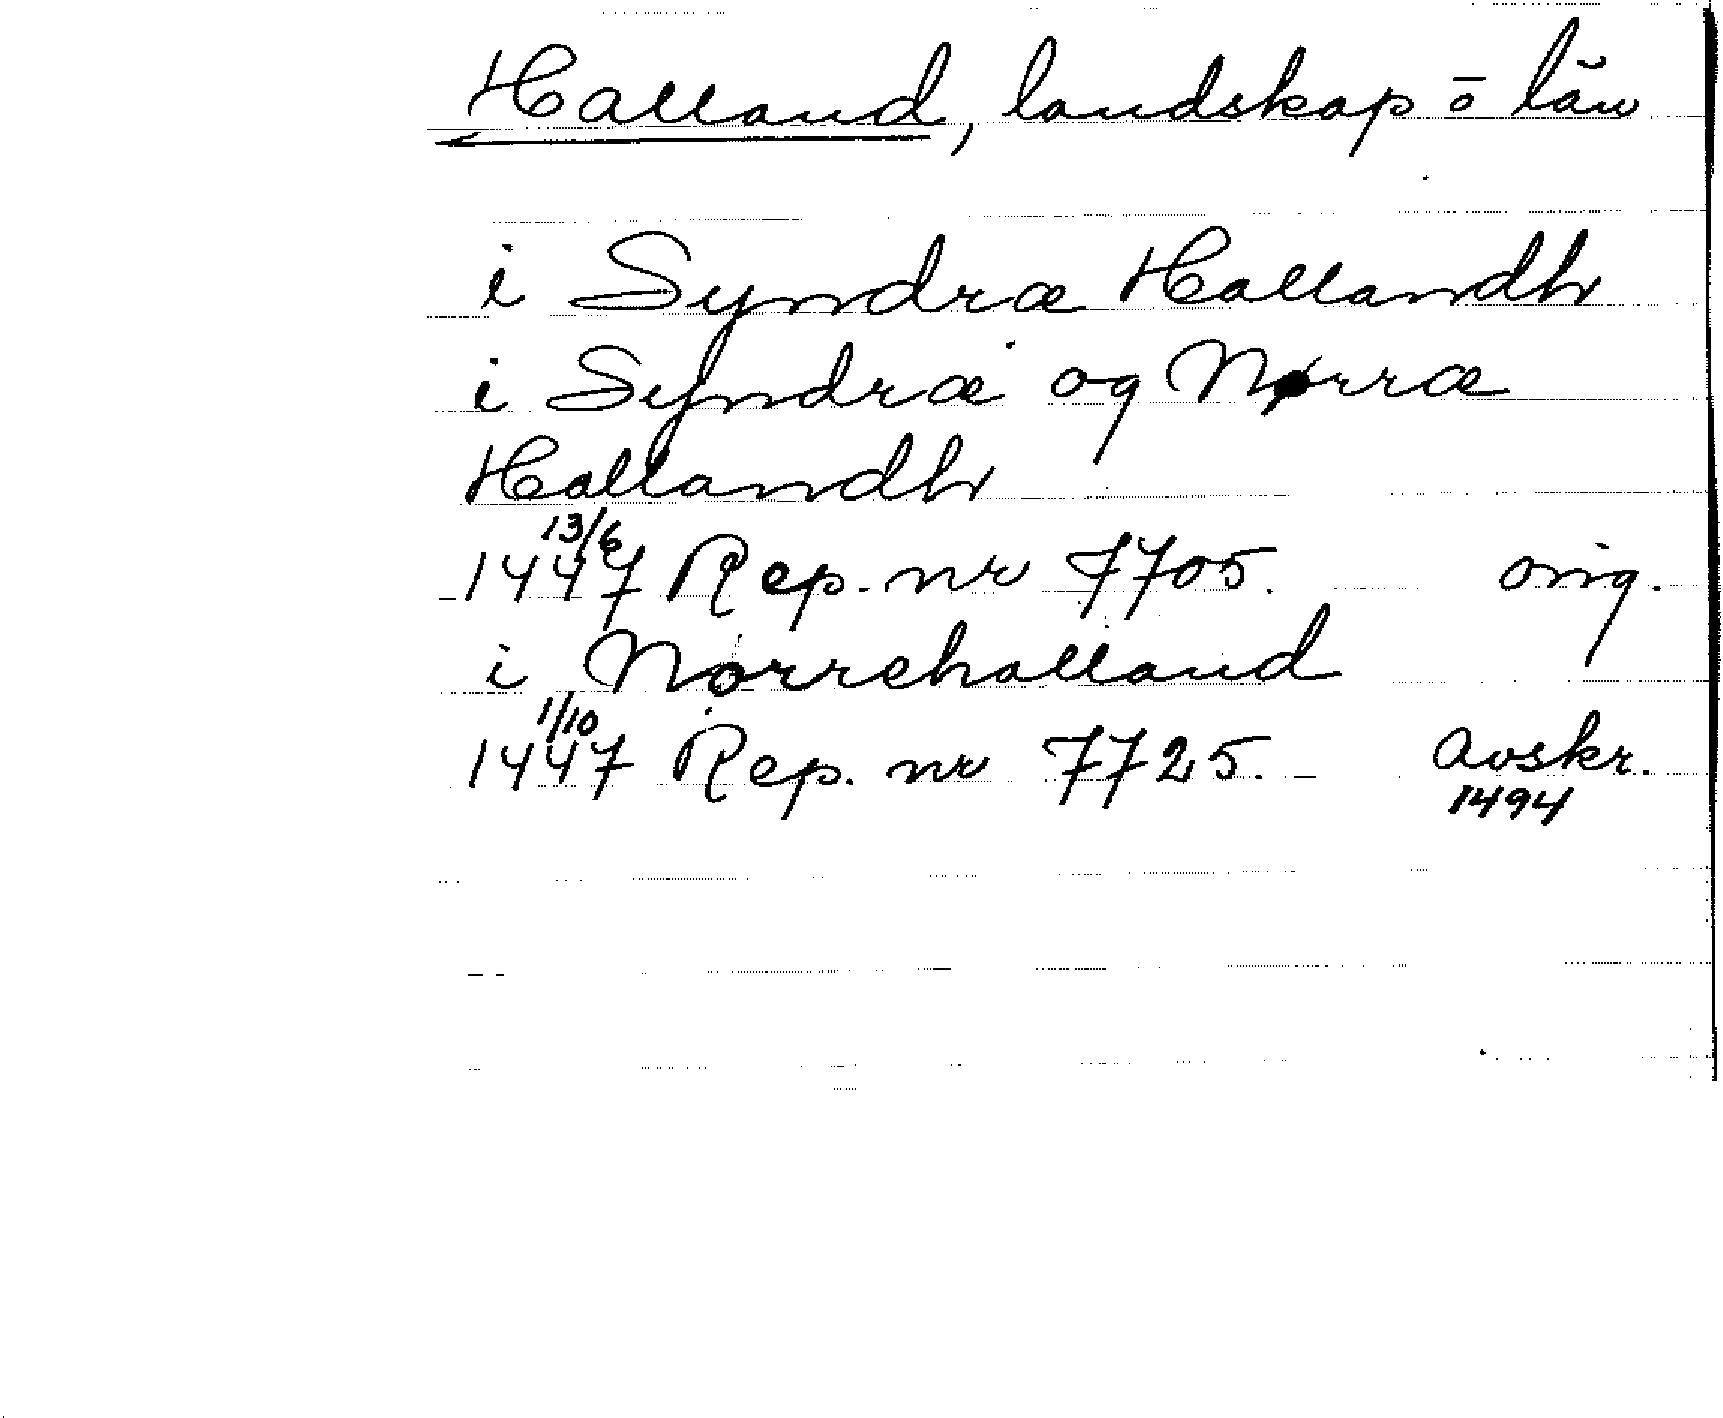 Halland, landskap o län
i Syndræ Hallandh
i Syndræ og Nørræ
Hallandh
13/6
1447 Rep. nr 7705. orig.
i Norrehalland
1/10
1447 Rep. nr 7725. Avskr.
1494